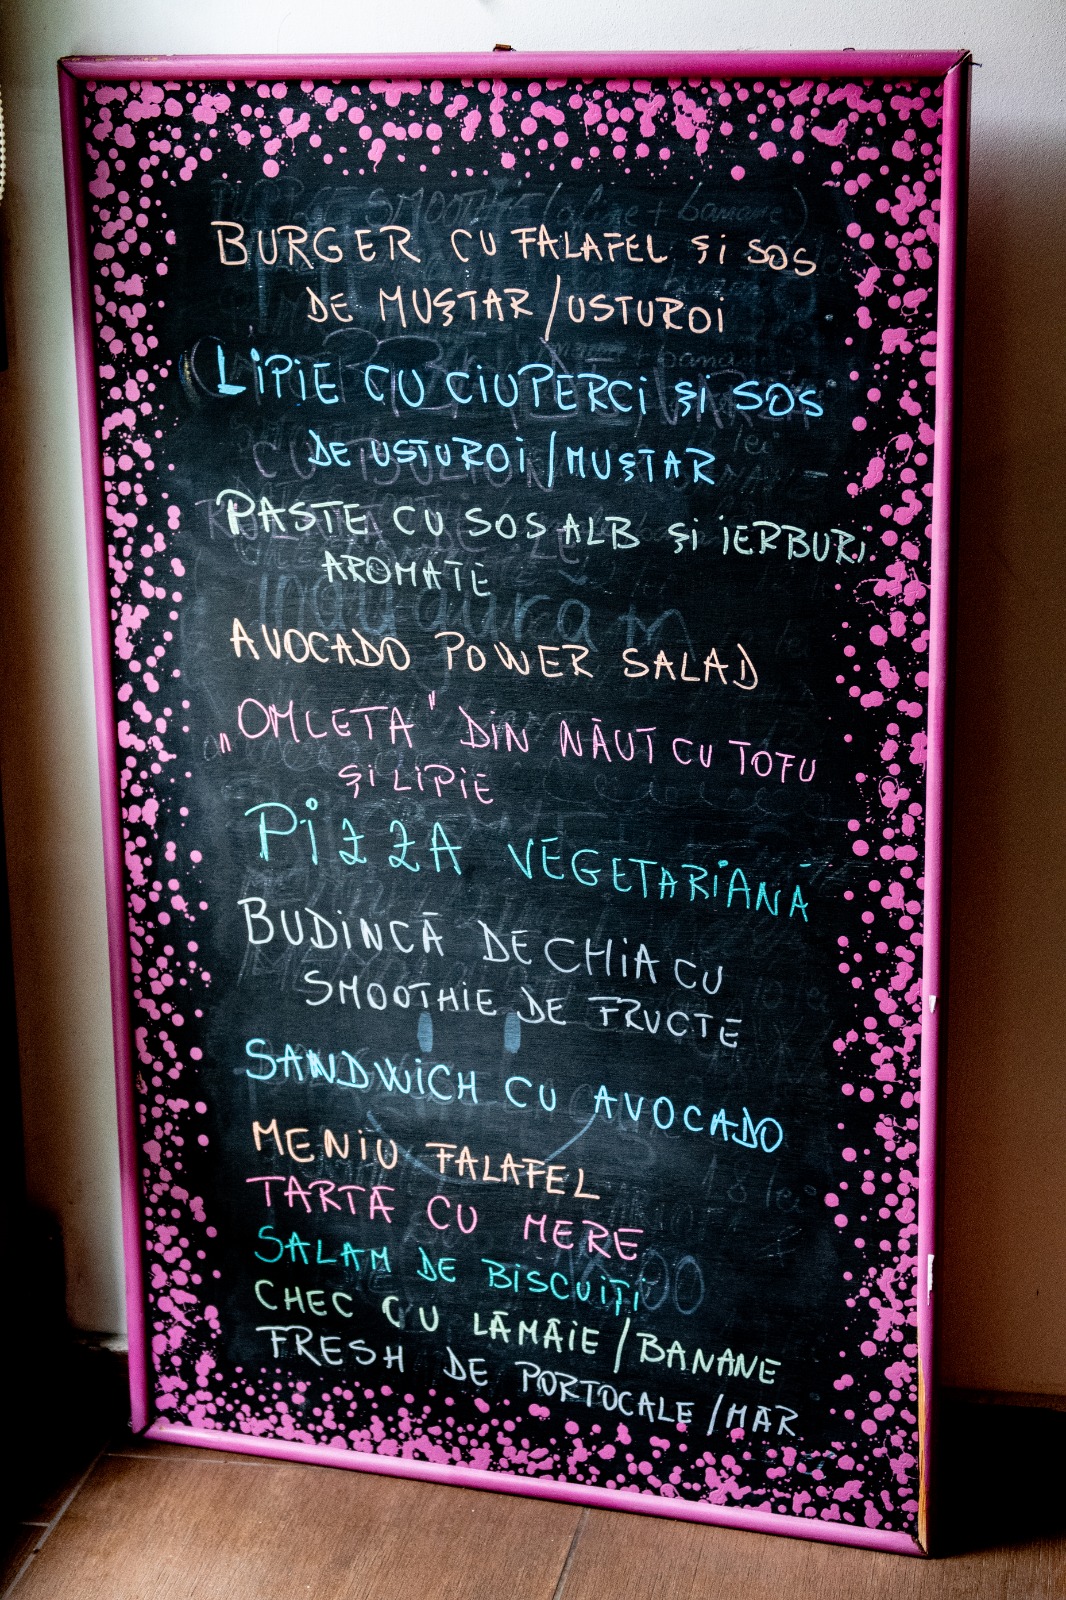 BURGER CU FALAFEL ȘI SOS
DE MUȘTAR/USTUROI
LIPIE CU CIUPERCI ȘI SOS
DE USTUROI/MUȘTAR
PASTE CU SOS ALB ȘI IERBURI
AROMATE
AVOCADO POWER SALAD
„OMLETA" DIN NĂUT CU TOFU
ȘI LIPIE
PIZZA VEGETARIANĂ
BUDINCĂ DE CHIA CU
SMOOTHIE DE FRUCTE
SANDWICH CU AVOCADO
MENIU FALAFEL
TARTĂ CU MERE
SALAM DE BISCUIȚI
CHEC CU LĂMÂIE/BANANE
FRESH DE PORTOCALE/MĂR